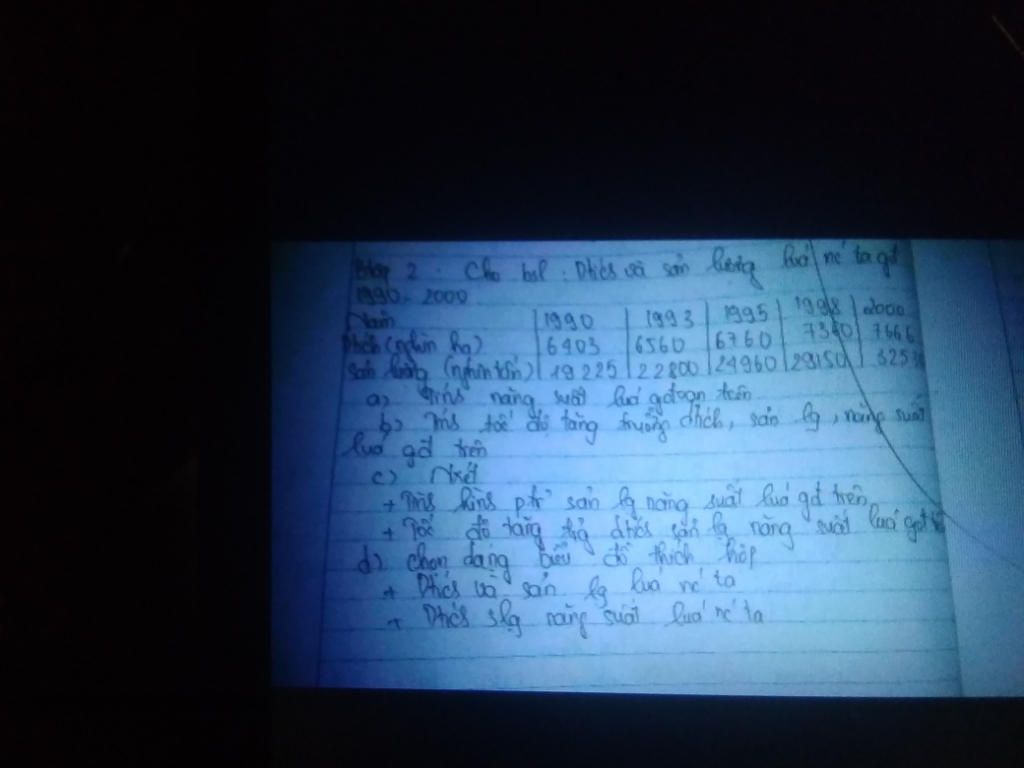 2. Cho bsl: Dtícs và sản lượng luá nc' ta gđ
1990 - 2000
Năm 1990 1993 1995 1998 2000
Dtích (nghìn ha) 6403 6560 6760 7360 7666
Sản lượng (nghìn tấn) 19225 22800 24960 29150
a) năng suất luá gđoạn trên
b) tốc độ tăng trưởng dtích, sản lg, năng suất
luá gđ trên
c) Nxét
+ sản lg năng suất luá gđ trên
+ Tốc độ tăng dtícs sản lg năng suất luá
d) chọn dạng biểu đồ thích hợp
+ Dtícs và sản lg luá nc' ta
+ Dtícs slg năng suất luá nc' ta